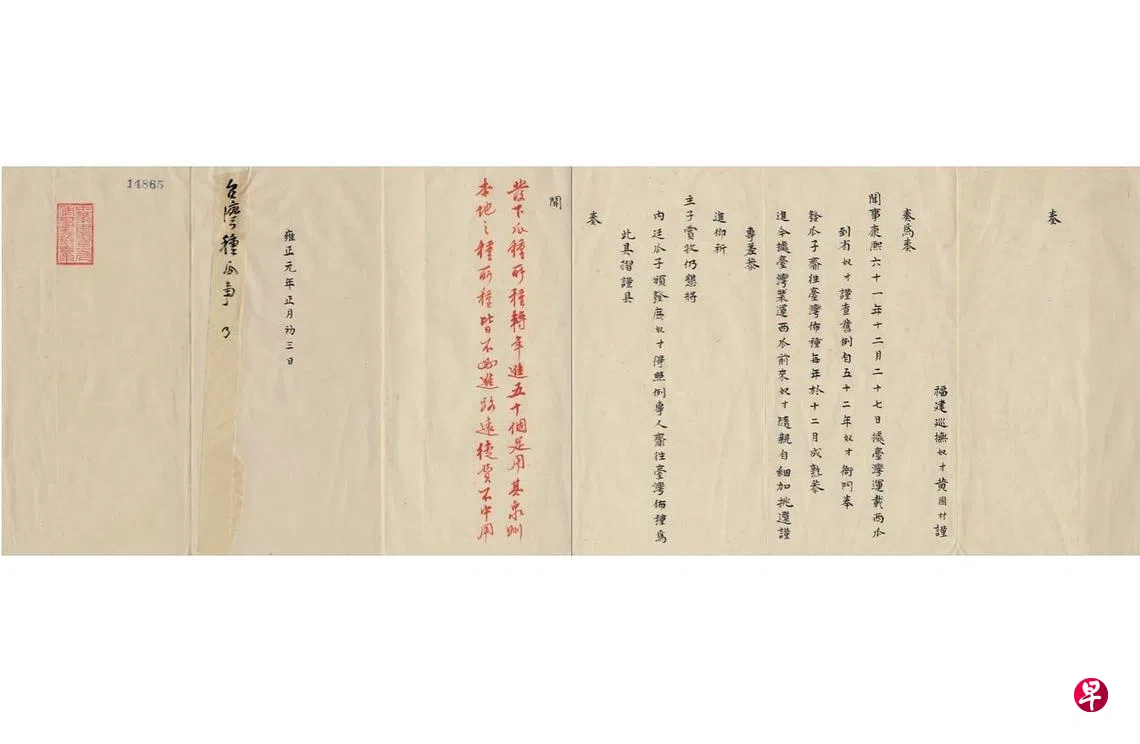 奏
福建巡撫奴才黃國材謹
奏為奏
聞事康熙六十一年十二月二十七日據臺灣運載西瓜
到省奴才謹查舊例自五十二年奴才衙門奉
發瓜子齎往臺灣佈種每年於十二月成熟恭
進今據臺灣裝運西瓜前來奴才隨親自細加挑選謹
專差恭
進仰祈
主子賞收仍懇將
內廷瓜子頒發庶奴才得照例專人齎往臺灣佈種為
此具摺謹具
奏
聞
發下瓜種所種轉年進五十個足用其泉州
本地之種所種皆不必進路遠徒費不中用
雍正元年正月初三日
台灣種瓜事
14865
早